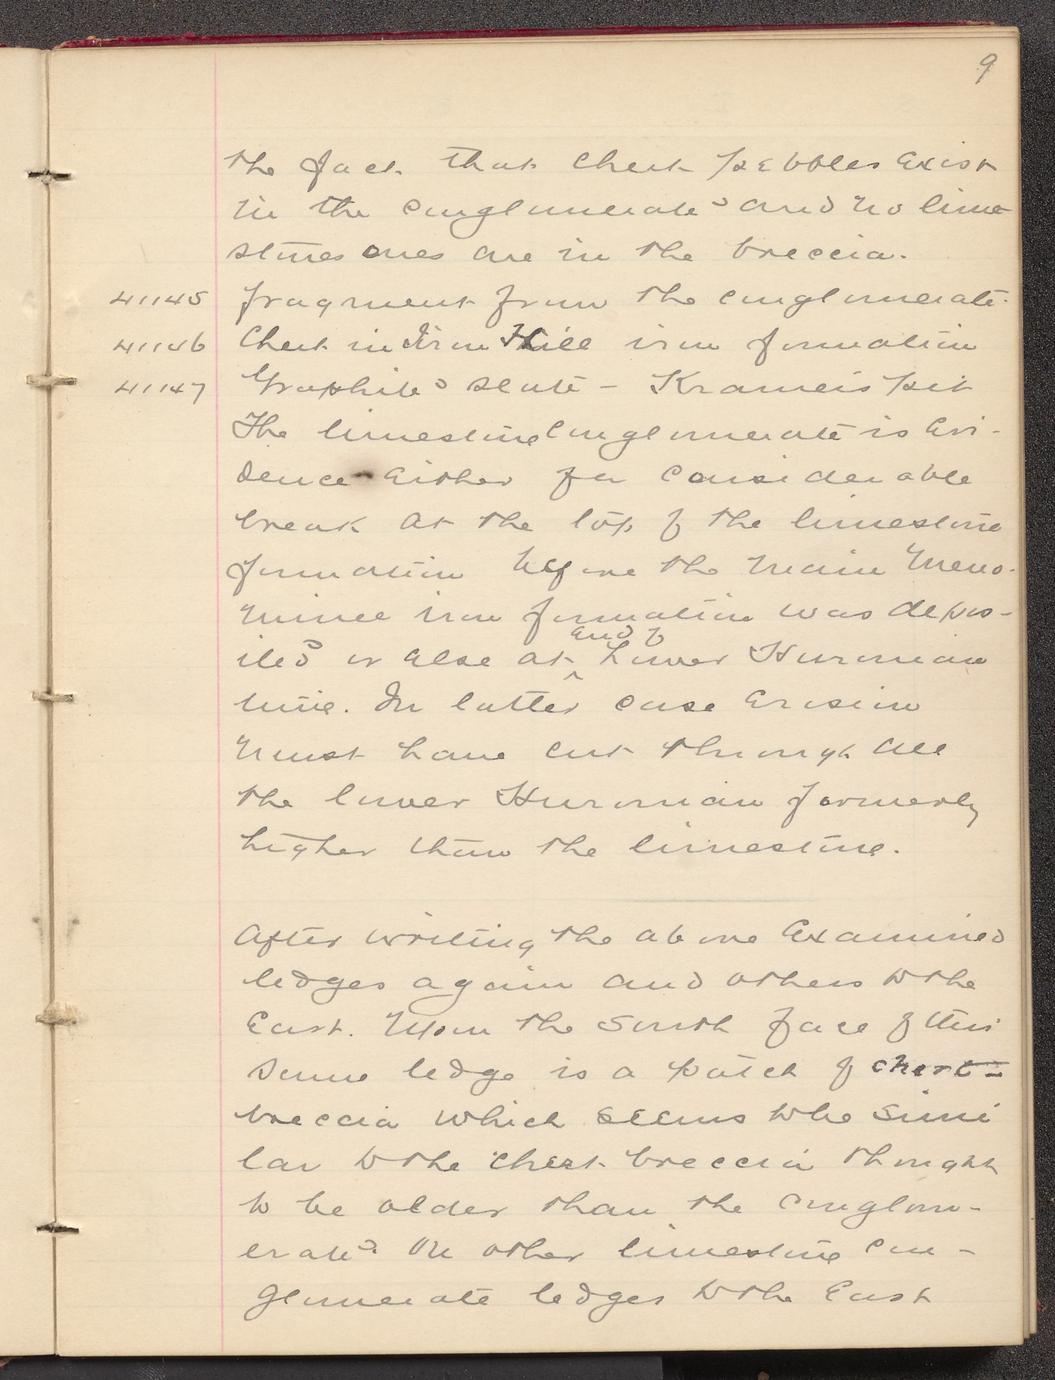 9
the fact that chert pebbles exist
in the conglomerate and no lime
stones ones are in the breccia.
41145 fragment from the conglomerate.
41146 Chert in Iron Hill iron formation
41147 Graphite slate - Kramer's pit
The limestone conglomerate is evi-
dence either for considerable
break at the top of the limestone
formation before the main Meno-
minee iron formation was depos-
ited or else at end of lower Huronian
time. In latter case erosion
must have cut through all
the lower Huronian formerly
higher than the limestone.
After writing the above examined
ledges again and others to the
East. Upon the south face of this
same ledge is a patch of chert-
breccia which seems to be simi
lar to the chert breccia thought
to be older than the conglom-
erate. On other limestone con-
glomerate ledges to the East